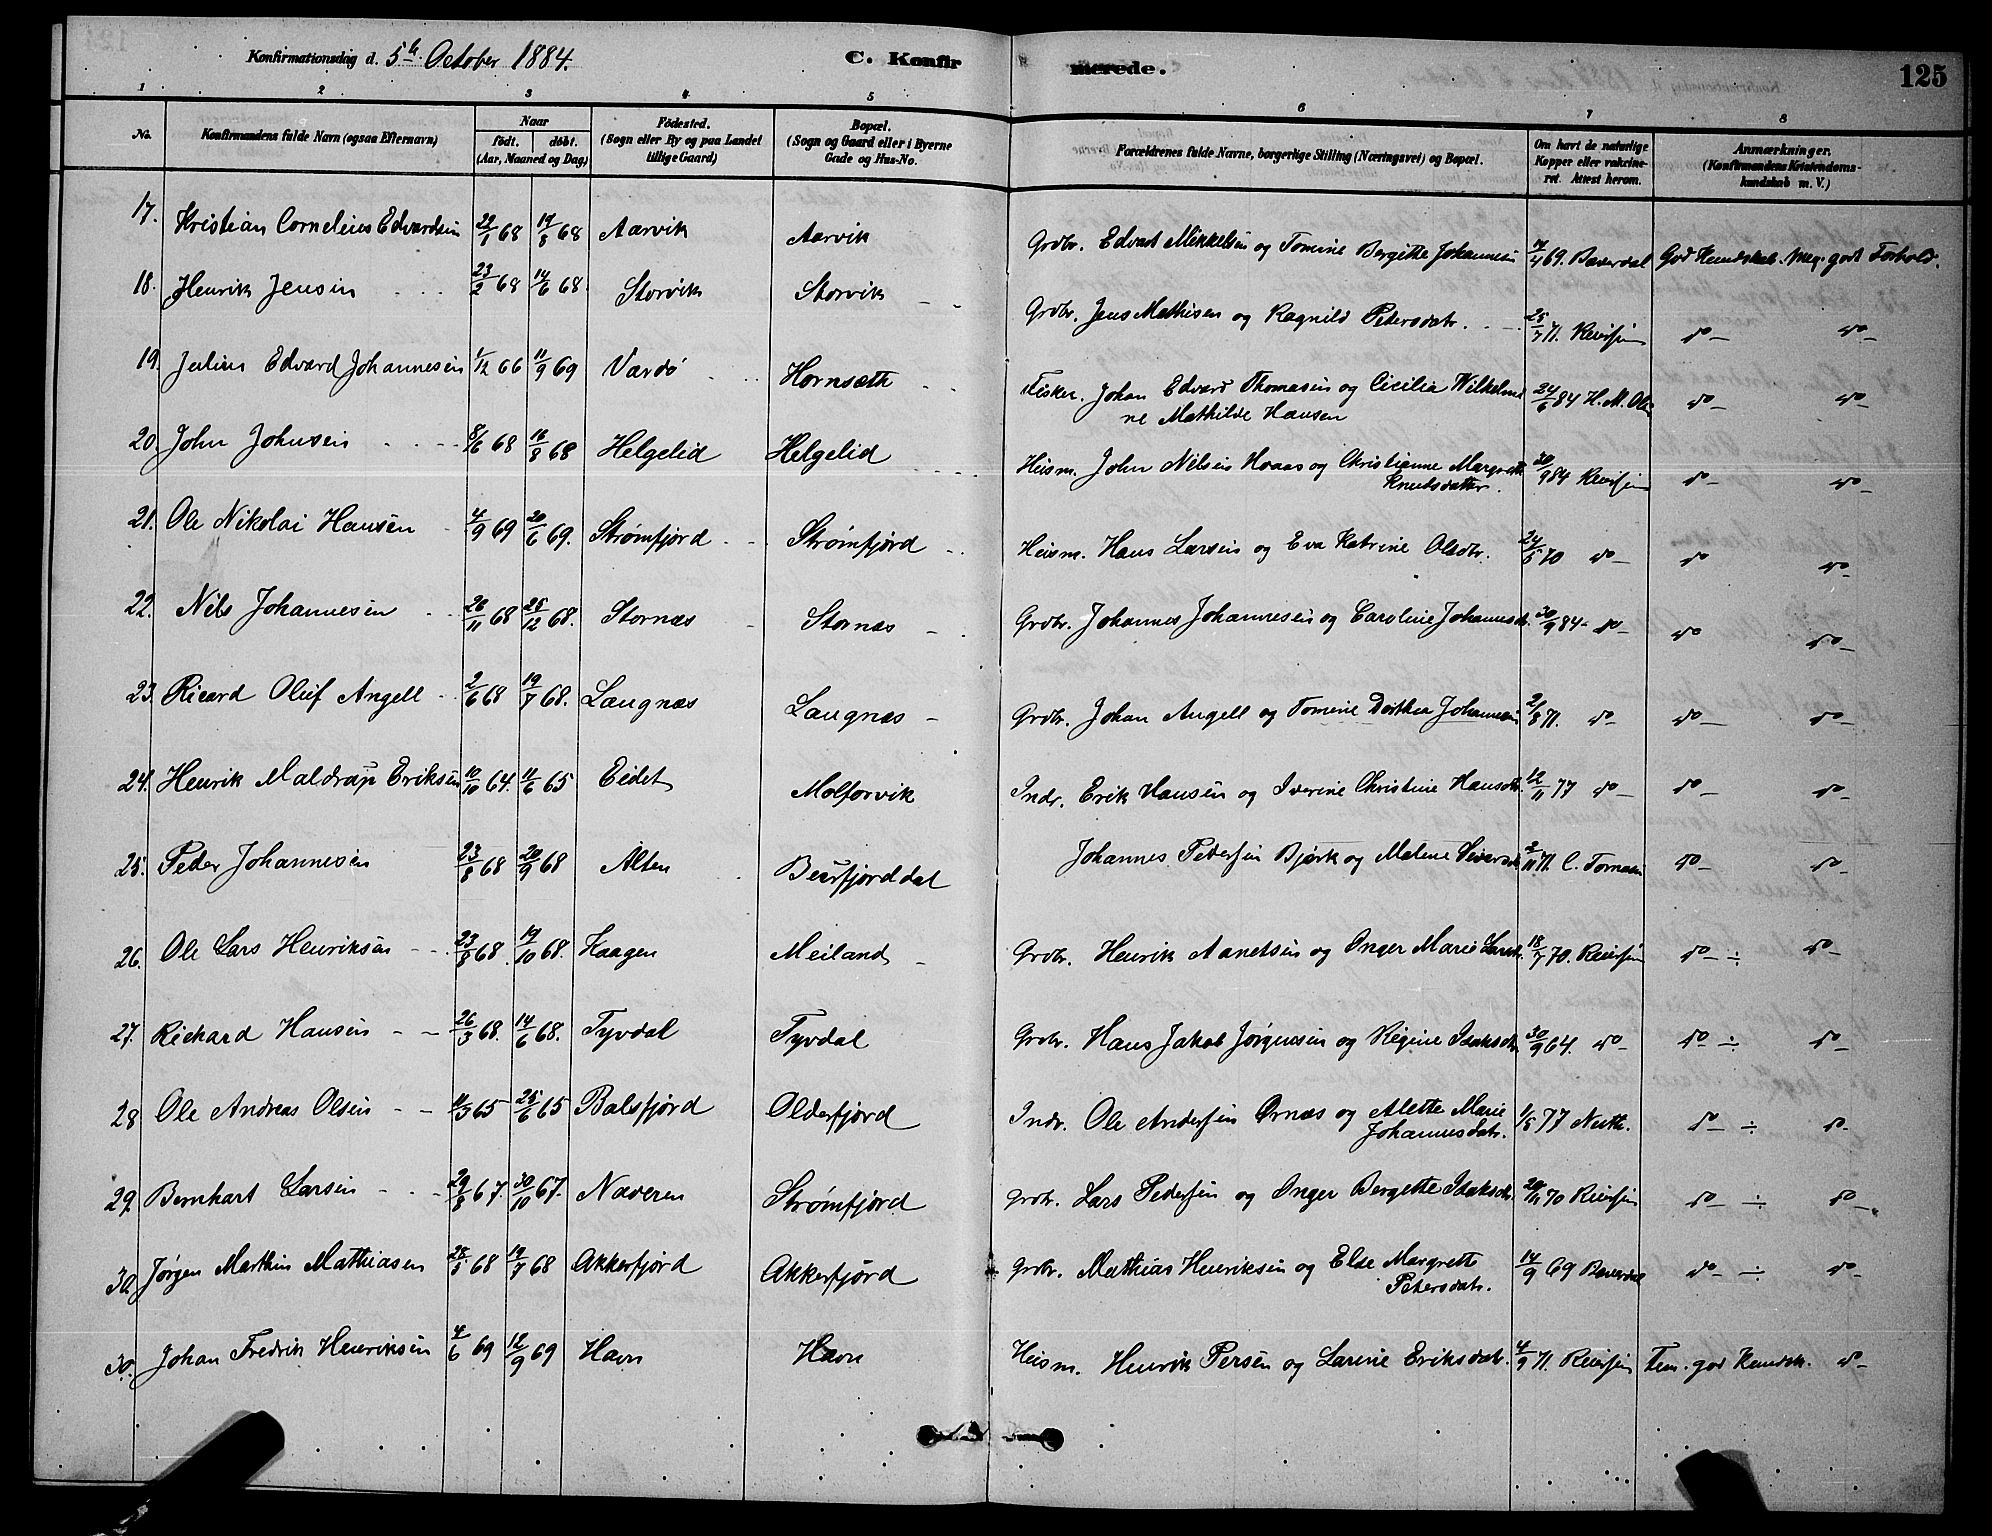 Konfirmationsdag d. 5te October 1884. C. Konfirmerede. 125
1 2 3 4 5 6 7 8
No. Konfirmandens fulde Navn (ogsaa Efternavn) Naar født. døbt. (Aar, Maaned og Dag) Fødested. (Sogn eller By og paa Landet tillige Gaard) Bopæl. (Sogn og Gaard eller i Byerne Gade og Hus-No. Forældrenes fulde Navne, borgerlige Stilling (Næringsvei) og Bopæl. Om havt de naturlige Kopper eller vakcineret. Attest herom. Anmærkninger. (Konfirmandens Kristendomskundskab m. V.)
17. Kristian Cornelius Edvardsen 22/1 68 19/8 68 Aarvik Aarvik Grdbr. Edvard Mikkelsen og Tomine Bergitte Johannesen 69. Baverdal God Kundskab. Meg. godt Forhold.
18. Henrik Jensen 23/2 68 14/6 68. Storvik Storvik Grdbr. Jens Mathisen og Ragnild Petersdatr. 25/7 71. Reiersen do do
19. Julius Edvard Johannesen 1/12 66 11/9 69 Vardø Hornsæth Fisker. Johan Edvard Thomasen og Cicilia Wilhelmi
ne Mathilde Hansen 24/6 84 H. M. Ols do do
20. John Johnsen 8/6 68 16/8 68 Helgelid Helgelid Husm. John Nilsen Hoaas og Christianne Margrete
Knudsdatter. 30/9 84 Reiersen do do
21. Ole Nikolai Hansen 4/9 69 20/6 69. Strømfjord Strømfjord Husm. Hans Larsen og Eva Katrine Olsdtr. 24/5 70 do do do
22. Nils Johannesen 26/11 68 25/12 68. Stornæs Stornæs Grdbr. Johannes Johannesen og Caroline Johannesdr. 30/9 84 do do do
23. Ricard Oluf Angell 2/6 68 19/7 68. Langnæs Langnæs Grdbr. Johan Angell og Tomine Dorthea Johannesen 2/8 71. do do do
24. Henrik Maldrup Eriksen 10/10 64. 11/6 65 Eidet Molforvik Indr. Erik Hansen og Iverine Christine Hansdtr. 12/11 77 do do do
25. Peder Johannesen 23/8 68 20/9 68 Alten Beurfjorddal Johannes Petersen Bjørk og Malene Siversdtr 2/11 71. C. Tomasen do do
26. Ole Lars Henriksen 23/8 68. 19/10 68. Kaagen Meiland Grdbr. Henrik Aanetsen og Inger Marie Larsdr. 18/7 70. Reiersen do ÷ do
27. Rickard Hansen 26/3 68. 14/6 68. Tyvdal Tyvdal Grdbr. Hans Jakob Jørgensen og Regine Isaksdr 30/9 64. do do ÷ do
28 Ole Andreas Olsen 11/3 65 25/6 65 Balsfjord Olderfjord Indr. Ole Andersen Ørnæs og Alette Marie
Johannesdatr. 1/5 77 do ÷ do
29. Bernhart Larsen 29/8 67. 30/10 67. Naveren Strømfjord Grdbr. Lars Pedersen og Inger Bergette Isaksdr. 70 Reiersen do ÷ do
30. Jørgen Marthin Mathiasen 28/5 68 19/7 68 Akkerfjord Akkerfjord Grdbr. Mathias Henriksen og Else Margrete
Petersdatr. 14/9 69 Baverdal do ÷ do
30. Johan Fredrik Henriksen 4/6 69 12/9 69 Havn Havn Husm. Henrik Persen og Larine Eriksdatr. 4/9 71. Reiersen Tem. god Kundsk. do